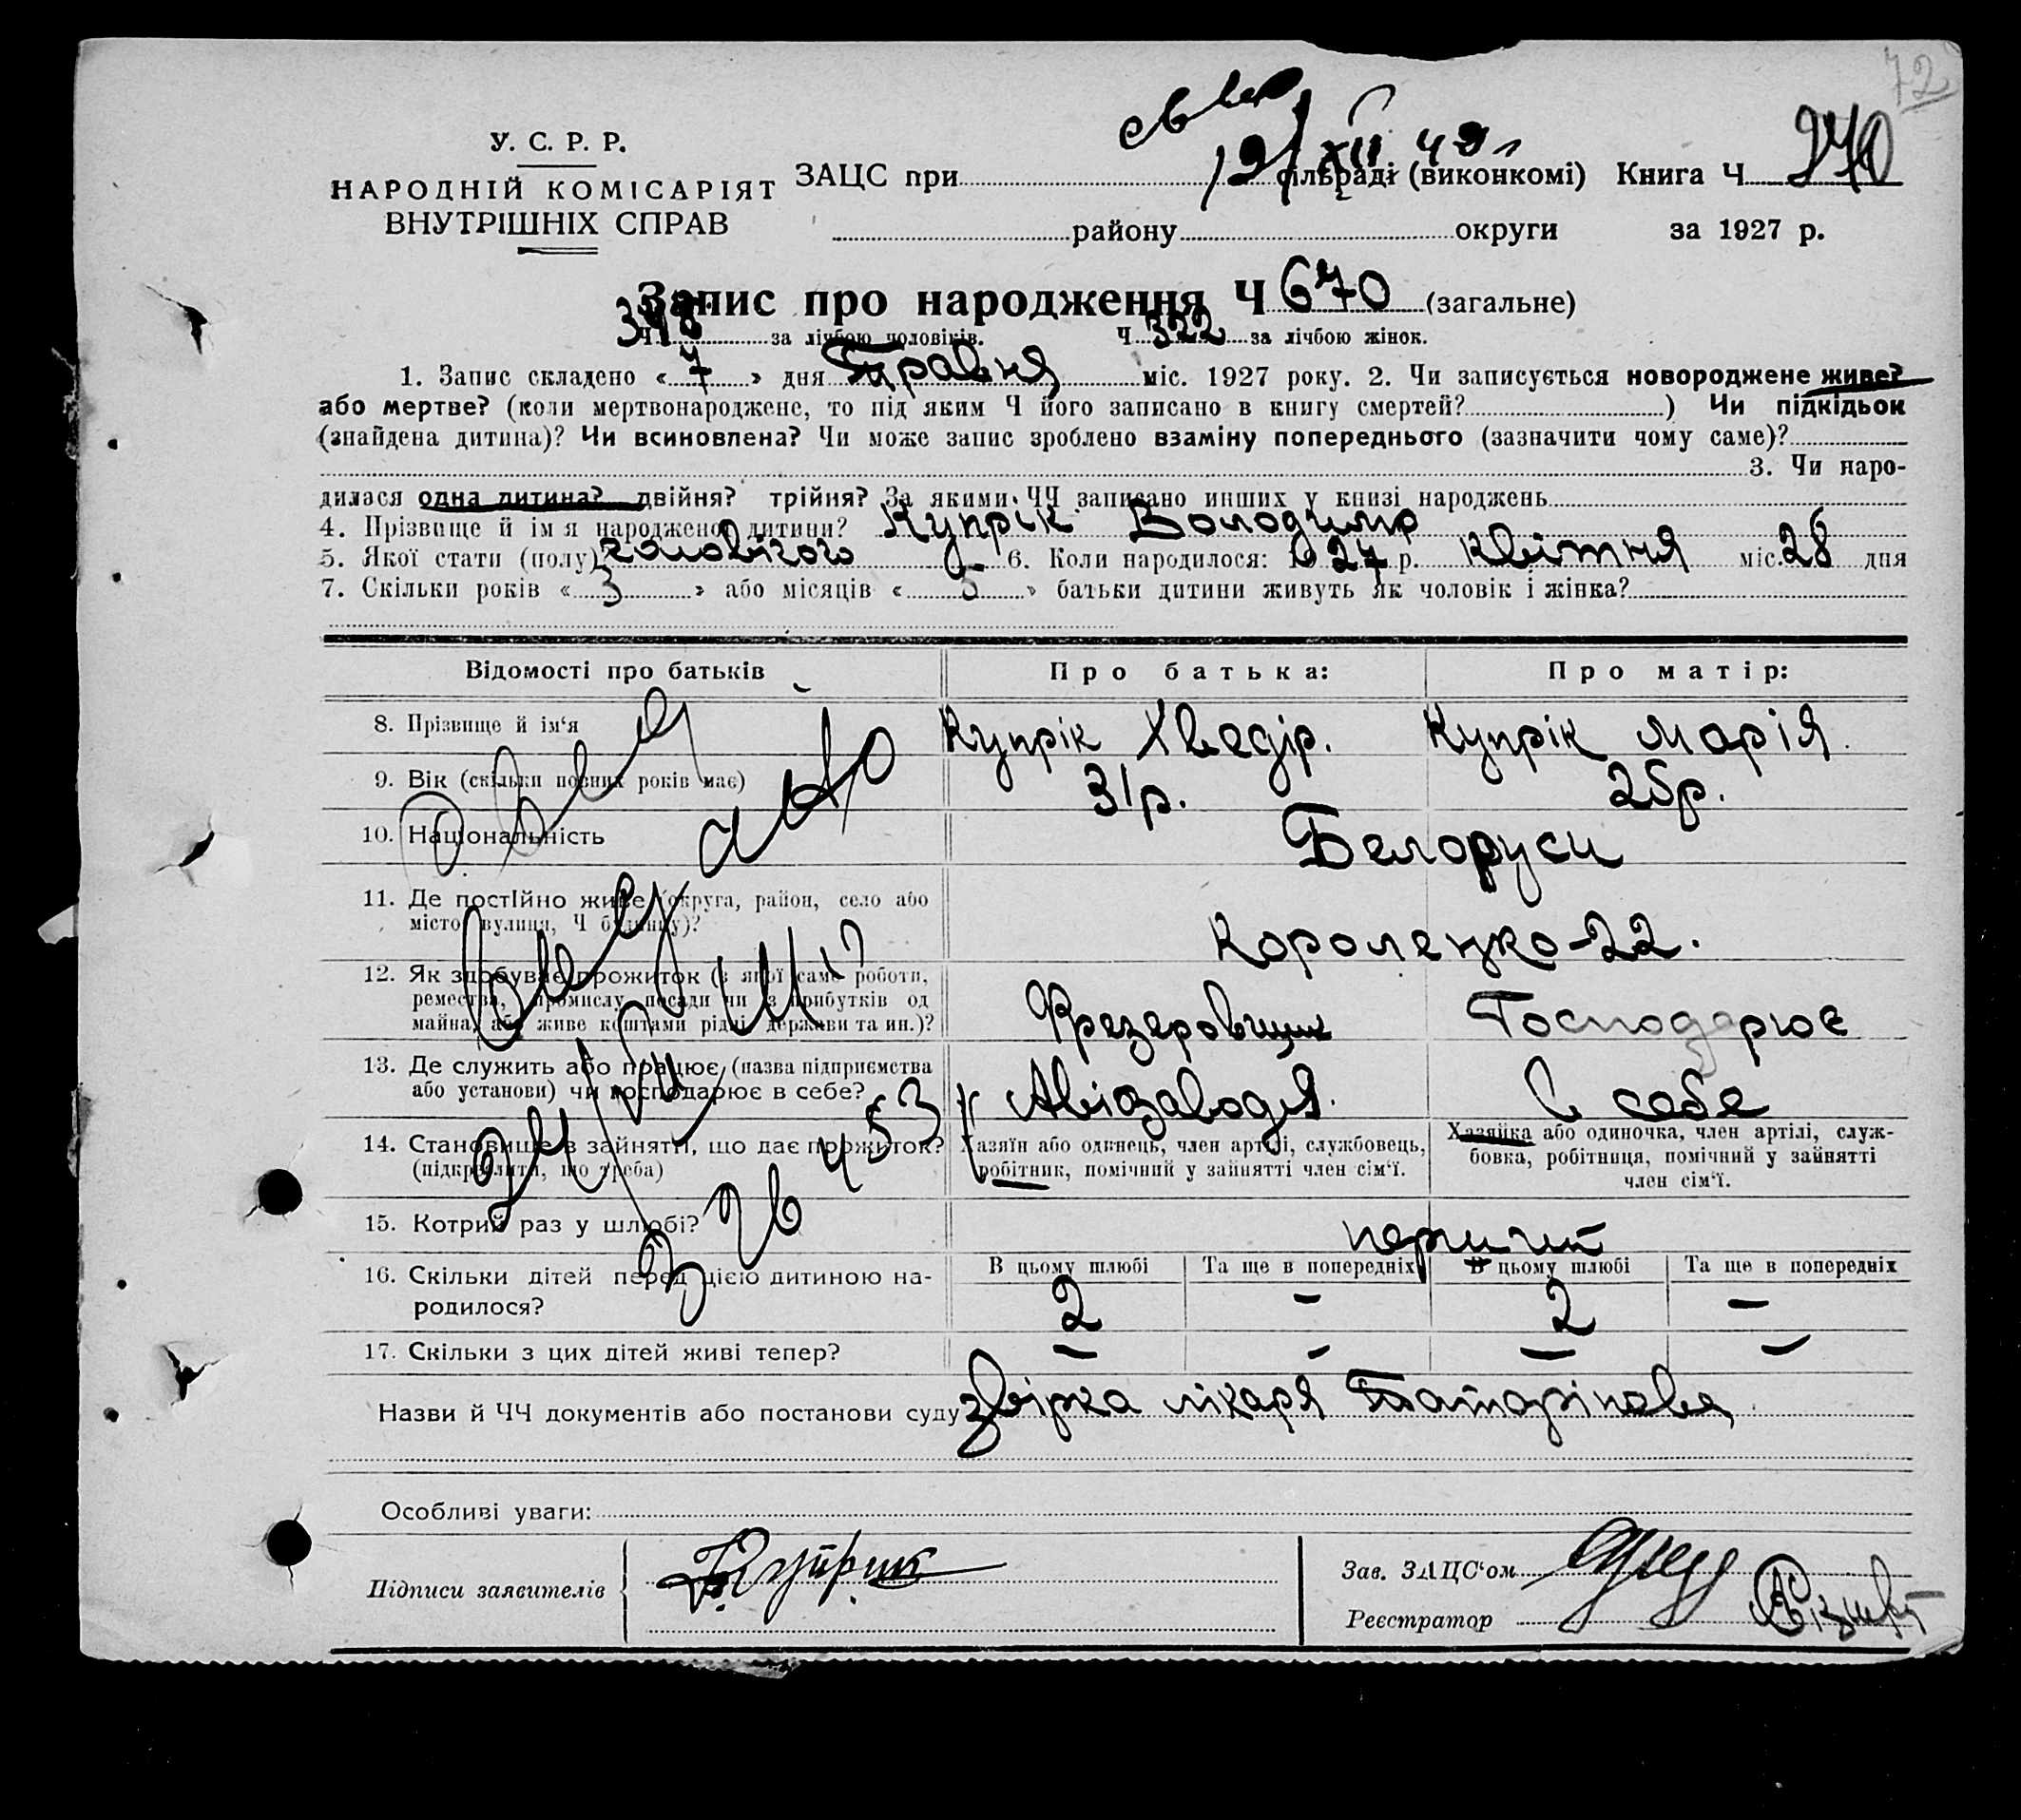 72
У. С. Р. Р.
НАРОДНІЙ КОМІСАРІЯТ
ВНУТРІШНІХ СПРАВ
ЗАЦС при сільраді (виконкомі) Книга Ч 270
району округи за 1927 р.
Запис про народження Ч 670 (загальне)
Ч 348 за лічбою чоловіків. Ч 322 за лічбою жінок.
1. Запис складено « 7 » дня Травня міс. 1927 року. 2. Чи записується новороджене живе?
або мертве? (коли мертвонароджене, то під яким Ч його записано в книгу смертей? ) Чи підкідьок
(знайдена дитина)? Чи всиновлена? Чи може запис зроблено взаміну попереднього (зазначити чому саме)?
3. Чи наро-
дилася одна дитина? двійня? трійня? За якими ЧЧ записано инших у книзі народжень
4. Прізвище й ім я народженої дитини? Купрік Володимир
5. Якої стати (полу) чоловічого 6. Коли народилося: 1927 р. Квітня міс. 28 дня
7. Скільки років « 3 » або місяців « 5 » батьки дитини живуть як чоловік і жінка?
Відомості про батьків Про батька: Про матір:
8. Прізвище й ім‘я Купрік Хведір. Купрік Марія.
9. Вік (скільки повних років має) 31р. 25р.
10. Національність Белоруси
11. Де постійно живе (округа, район, село або
місто, вулиця, Ч будинку)? Короленко-22.
12. Як здобуває прожиток (з якої саме роботи,
ремества, промислу, посади чи з прибутків од
майна, або живе коштами рідні, держави та ин.)? Фрезеровщик Господарює
13. Де служить або працює (назва підприємства
або установи) чи господарює в себе? Авіозаводя. в себе
14. Становище в зайнятті, що дає прожиток?
(підкреслити, що треба)
Хазяїн або одинець, член артілі, службовець,
робітник, помічний у зайнятті член сім‘ї.
Хазяйка або одиночка, член артілі, служ-
бовка, робітниця, помічний у зайнятті
член сім‘ї.
15. Котрий раз у шлюбі? перший
16. Скільки дітей перед цією дитиною на-
родилося?
В цьому шлюбі Та ще в попередніх В цьому шлюбі Та ще в попередніх
2 – 2 –
17. Скільки з цих дітей живі тепер? – – – –
Назви й ЧЧ документів або постанови суду звірка лікаря
Особливі уваги:
Підписи заявителів Куприк
Зав. ЗАЦС‘ом
Реєстратор